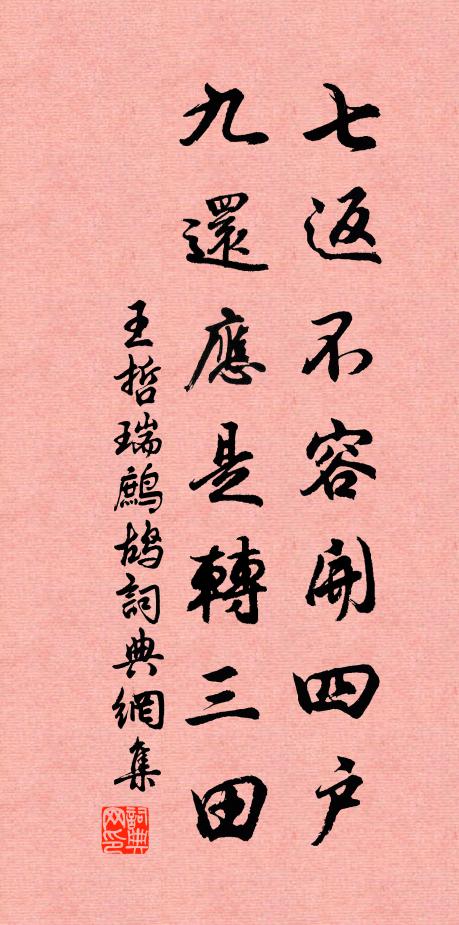 七返不容開四户
九還應是轉三田
王哲瑞鷓鴣詞典網集
詞典网印